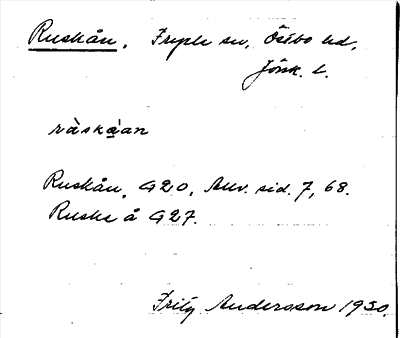 Ruskån, Fryele sn, Östbo hd,
Jönk. l.
ràskạ̀an
Ruskån, G20, Anv. sid. 7, 68.
Ruska å G27.
Fritz Andersson 1930.